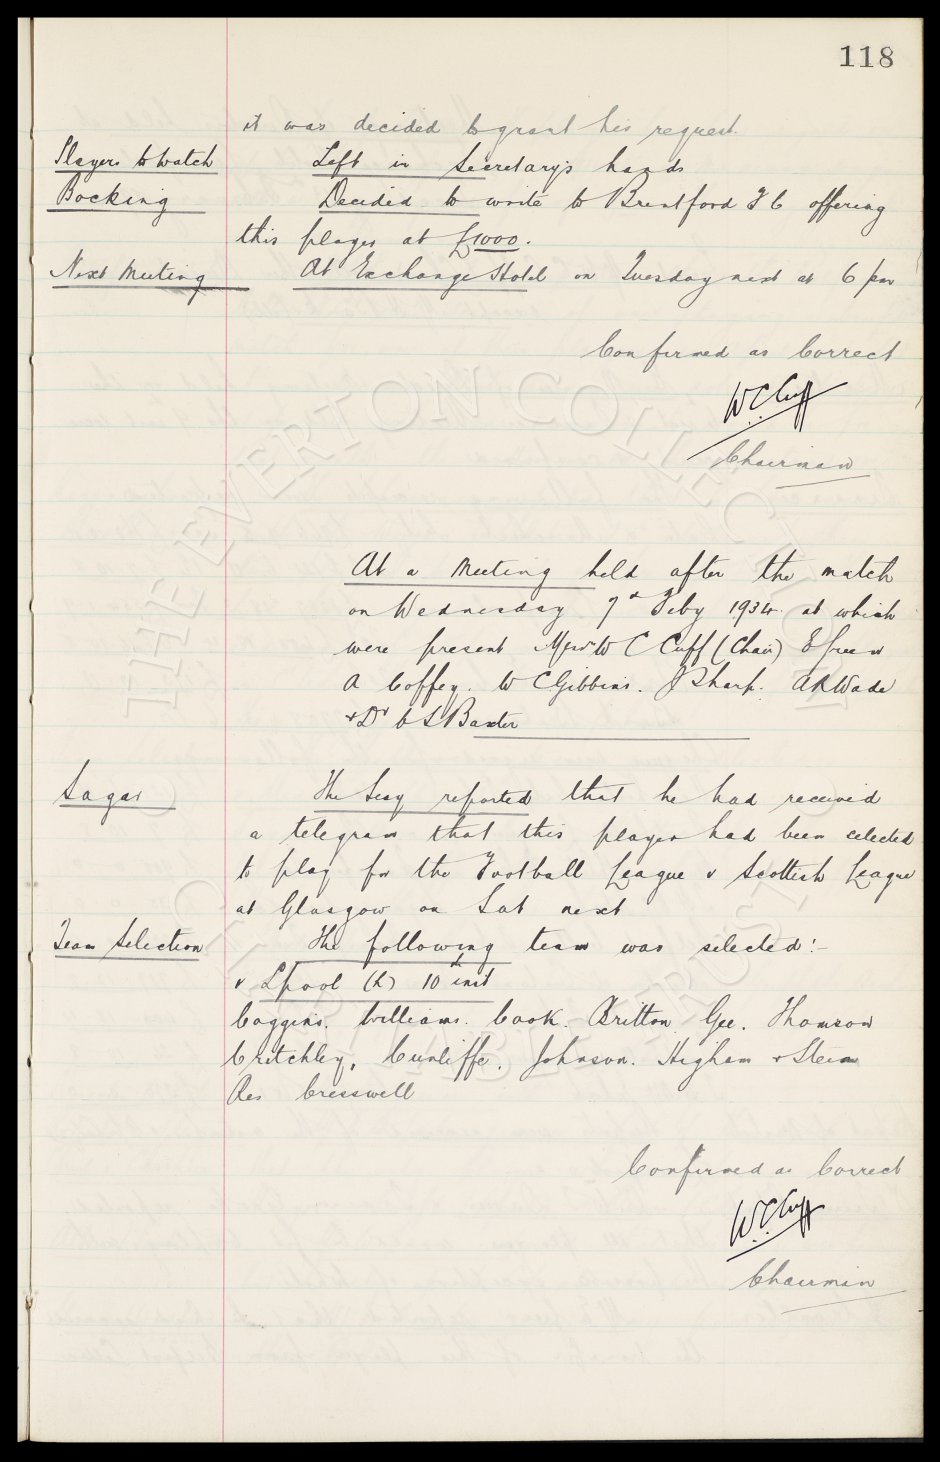 118
it was decided to grant his request.
Players to Watch Left in Secretary's hands
Bocking Decided to write to Brentford F C offering
this player at £1000.
Next Meeting At Exchange Hotel on Tuesday next at 6 pm
Confirmed as Correct
W.C. Cuff
Chairman
At a Meeting held after the match
on Wednesday 7th Feby 1934 at which
were present Messrs W C Cuff (Chair) E Green
A Coffey. W C Gibbins. J Sharp. A R Wade
+ Dr C S Baxter
Sagar The Secy reported that he had received
a telegram that this player had been selected
to play for the Football League v Scottish League
at Glasgow on Sat next
Team Selection The following team was selected:-
v L'pool (L) 10th inst
Coggins. Williams. Cook. Britton. Gee. Thomson
Critchley, Cunliffe. Johnson. Higham + Stein
Res Cresswell
Confirmed as Correct
W.C. Cuff
Chairman
THE EVERTON COLLECTION
CHARITABLE TRUST